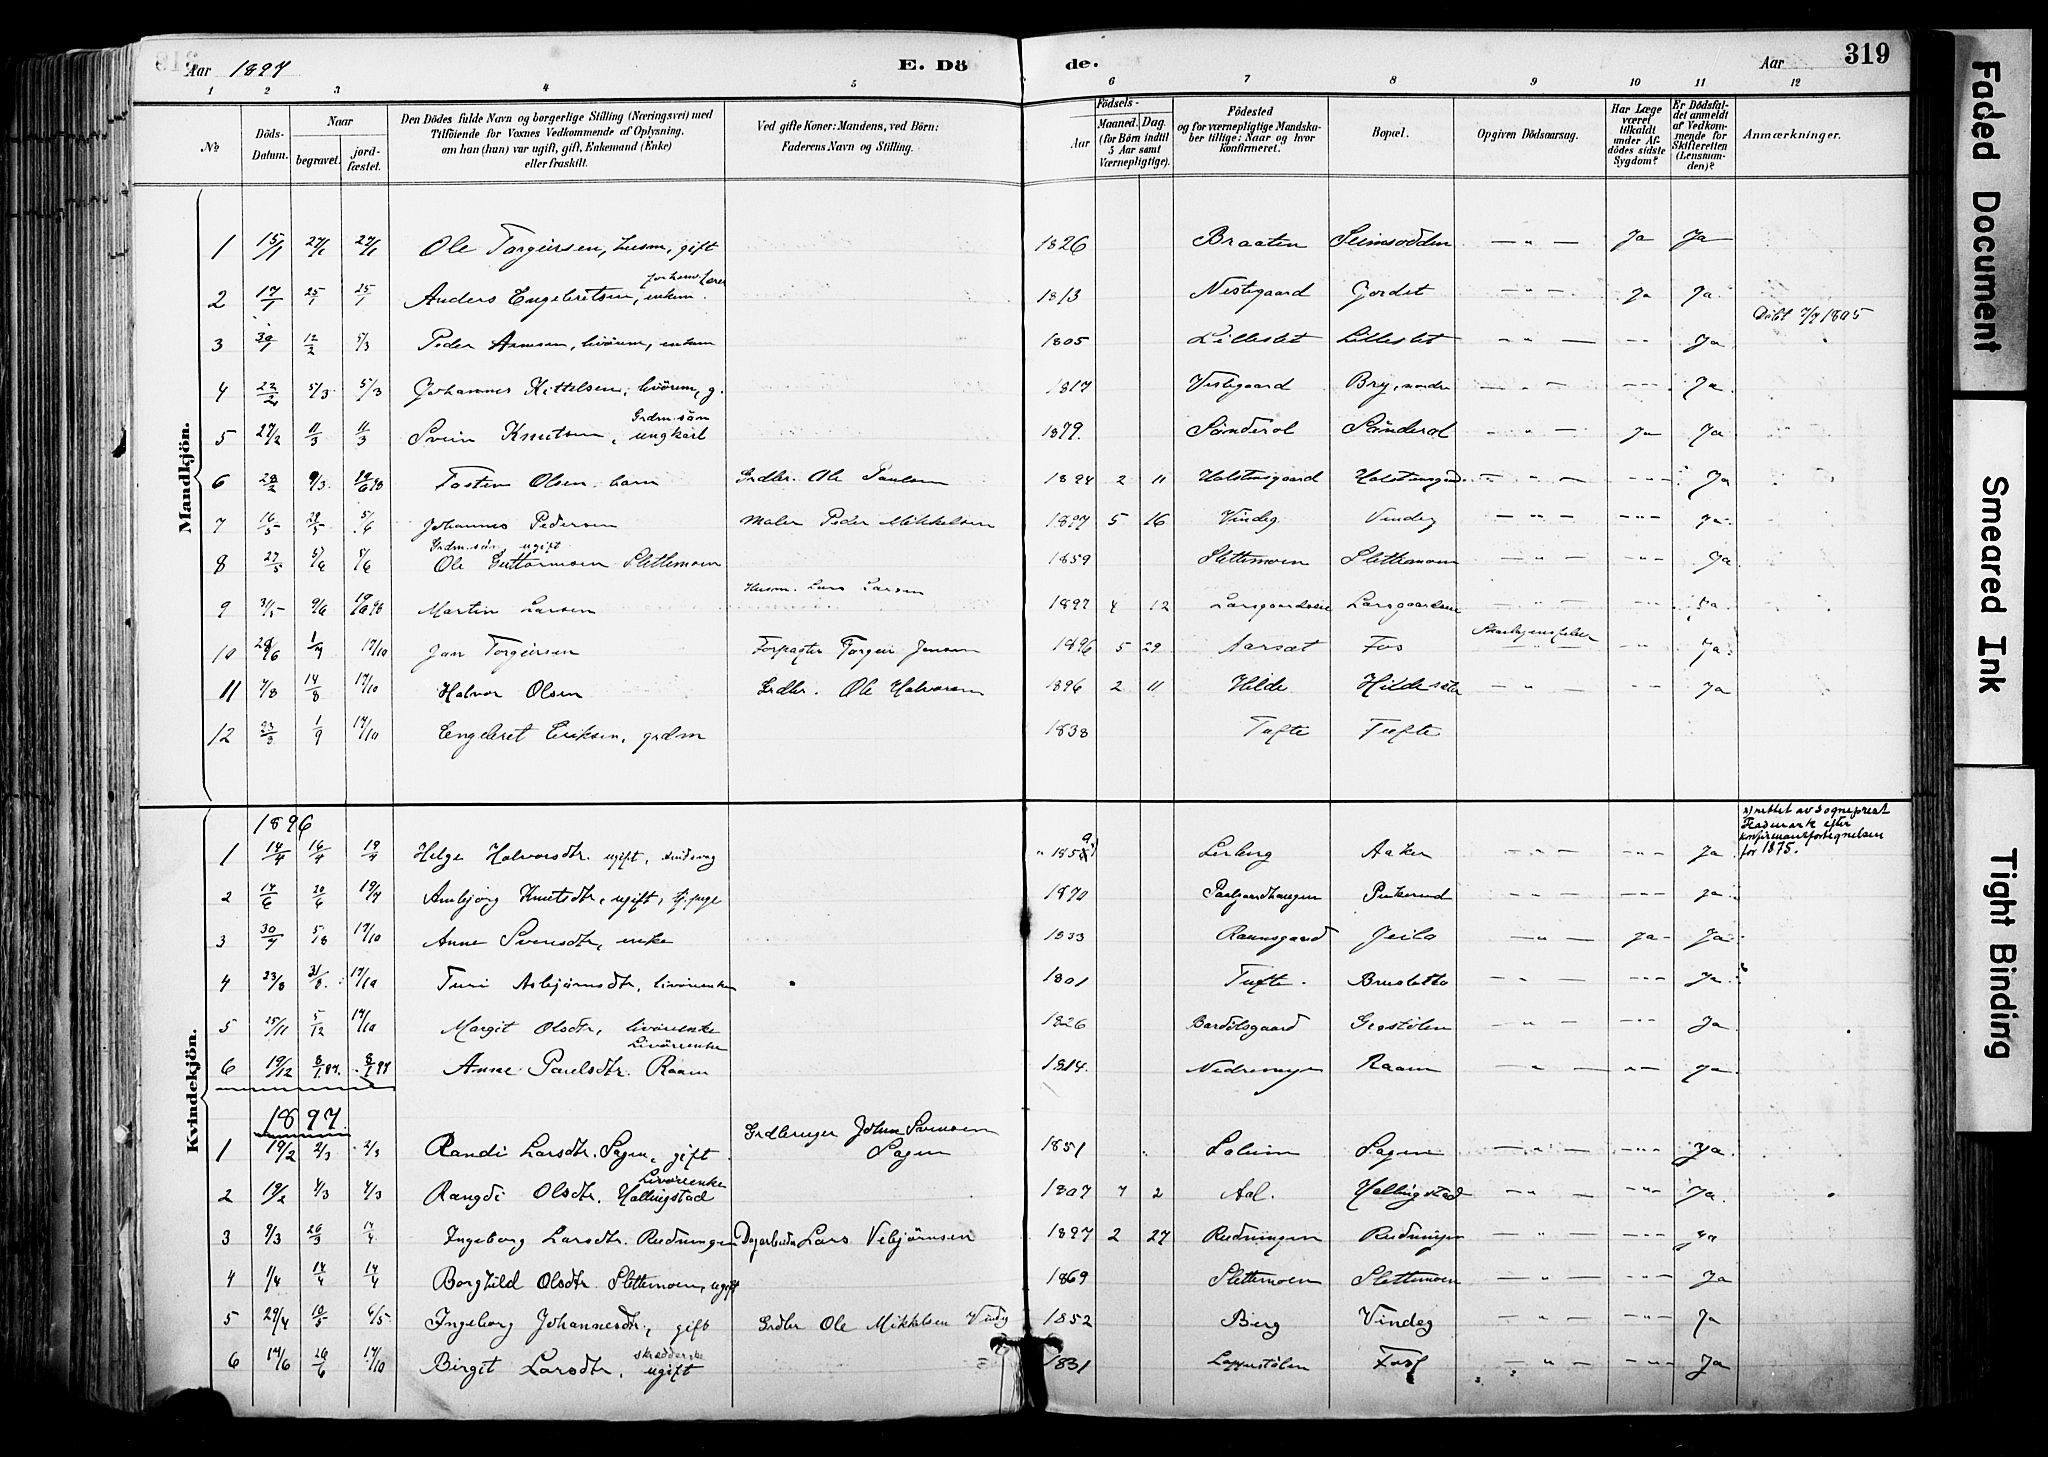 Aar 1897 E. Dö de. Aar 319
1 2 3 4 5 6 7 8 9 10 11 12
No. Döds-Datum. Naar begravet. jordfæstet. Den Dödes fulde Navn og borgerlige Stilling (Næringsvei) med Tilföiende for Voxnes Vedkommende af Oplysning, om han (hun) var ugift, gift, Enkemand (Enke) eller fraskilt. Ved gifte Koner: Mandens, ved Börn: Faderens Navn og Stilling. Födsels- Aar Maaned. Dag. (for Börn indtil 5 Aar samt Værnepligtige). Födested og for værnepligtige Mandskaber tillige: Naar og hvor konfirmeret. Bopæl. Opgiven Dödsaarsag. Har Læge været tilkaldt under Afdödes sidste Sygdom? Er Dödsfaldet anmeldt af Vedkommende for Skifteretten (Lensmanden)? Anmærkninger.
Mandkjön.
1 15/1 27/1 27/1 Ole Torgeirsen, husm, gift 1826 Braaten Seimsodden — " — Ja Ja
2 17/1 25/1 25/1 Anders Engebretsen, enkem. 1813 Nestegaard Gordet — " — Ja Ja
3 30/1 12/2 5/3 Peder Arnesen, livörem, enkem 1805 Lilleslet Lilleslet — " — Ja Döbt 7/7 1805
4 22/2 5/3 5/3 Johannes Kittelsen, livörem, g. 1817 Vestegaard Bry, nordre — " — Ja
5 27/2 11/3 11/3 Svein Knutsen, Grdm.sön ungkarl 1879. Sönderol Sönderol — " — Ja Ja
6 28/2 9/3 19/6 98 Tosten Olsen, barn Grdbr. Ole Paulsen 1894 2 11 Holstensgaard — " — Ja
7 16/5 29/5 5/6 Johannes Pedersen Maler Peder Mikkelsen 1897 5 16 Vindeg Vindeg — " — Ja
8 27/5 5/6 5/6 Grdm.sön ugift Ole Guttormsen Slettemoen 1859 Slettemoen Slettemoen — " — Ja
9 31/5 9/6 Martin Larsen Husm. Lars Larsen 1897 4 12 — " — Ja
10 28/6 1/7 17/10 Jan Torgeirsen Forpagter Torgeir Jensen 1896 5 29 Aarset Fos — " — Ja
11 7/8 14/8 17/10 Halvor Olsen Grdbr. Ole Halvorsen 1896 2 11 Hilde — " — Ja
12 23/8 1/9 17/10 Engebret Eriksen, grdm 1838 Tufte Tufte
Kvindekjön.
1896
1 14/4 16/4 19/4 Helge Halvorsdtr. ugift, sindssvag Aaker — " — Ja x) rettet av sogneprest Flasmark efter konfirmantfortegnelsen for 1875.
2 14/6 20/6 19/7 Asbjörg Knutsdtr, ugift, 1870 — " — Ja
3 30/7 5/8 17/10 Anne Svensdtr, enke 1833 Raunsgaard Geilo — " — Ja Ja
4 23/8 31/8 17/10 Turi Asbjörnsdtr, livörenke 1801 Tufte. Brusletto — " — Ja
5 25/11 5/12 17/10 Margit Olsdtr, livörenke 1826 Bardölsgaard Gerstölen — " — Ja
6 19/12 8/1 97. 8/1 97 Anne Paulsdtr. Raaen Livörenke 1814. Raaen — " — Ja
1897
1 19/2 2/3 2/3 Randi Larsdtr. Sagen, gift Grdbruger Johan Svensen Sagen 1851 Solum Sagen — " — Ja
2 19/2 4/3 4/3 Rangdi Olsdtr. Hallingstad Livörenke 1807 7 2 Aal. Hallingstad — " — Ja
3 9/3 26/3 17/4 Ingeborg Larsdtr. Rudningen Dagarbeider Lars Vebjörnsen 1897 2 27 Rudningen Rudningen — " — Ja
4 1/4 14/4 14/4 Borghild Olsdtr. Slettemoen, ugift 1869 Slettemoen Slettemoen — " — Ja
5 29/4 10/5 6/5 Ingeborg Johannesdtr, gift Grdbr Ole Mikkelsen Vindeg 1852 Berg Vindeg — " — Ja
6 14/6 26/6 17/10 Birgit Larsdtr, skredderske ugift 1831 Lapperstölen Foss — " — Ja
Faded Document
Smeared Ink
Tight Binding